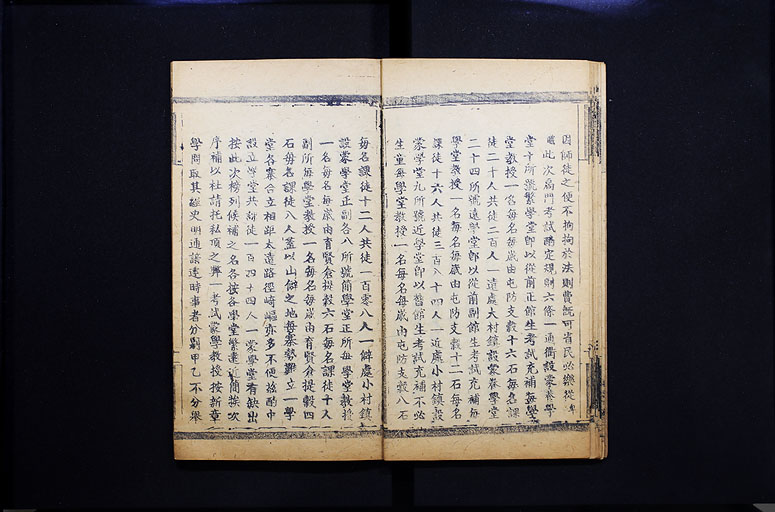 因師徒之便不拘拘於法則費既可省民必樂從
此次扃門考試酌定規則六條一通衢設蒙養學
堂十所號繁學堂卽以從前正館生考試充補每學
堂教授一名每名每歲由屯防支穀十六石每名課
徒二十人共徒二百人一遠處大村鎮設蒙養學堂
二十四所號遠學堂卽以從前副館生考試充補每
學堂教授一名每名每歲由屯防支穀十二石每名
課徒十六人共徒三百八十四人一近處小村鎮設
蒙學堂九所號近學堂卽以舊館生考試充補不必
生童每學堂教授一名每名每歲由屯防支穀八石
每名課徒十二人共徒一百零八人一僻處小村鎮
設蒙學堂正副各八所號簡學堂正所每學堂教授
一名每名每歲由育賢倉提穀六石每名課徒十人
副所每學堂教授一名每名每歲由育賢倉提穀四
石每名課徒八人蓋以山僻之地每寨勢難立一學
堂各寨合立相距太遠路徑崎嶇亦多不便故酌中
設立學堂共師徒一百四十四人一蒙學堂有缺出
按此次榜列候補之名各按各學堂繁遠近簡挨次
序補以杜請托私頂之弊一考試蒙學教授按新章
學問取其經史明通諳達時事者分別甲乙不分舉